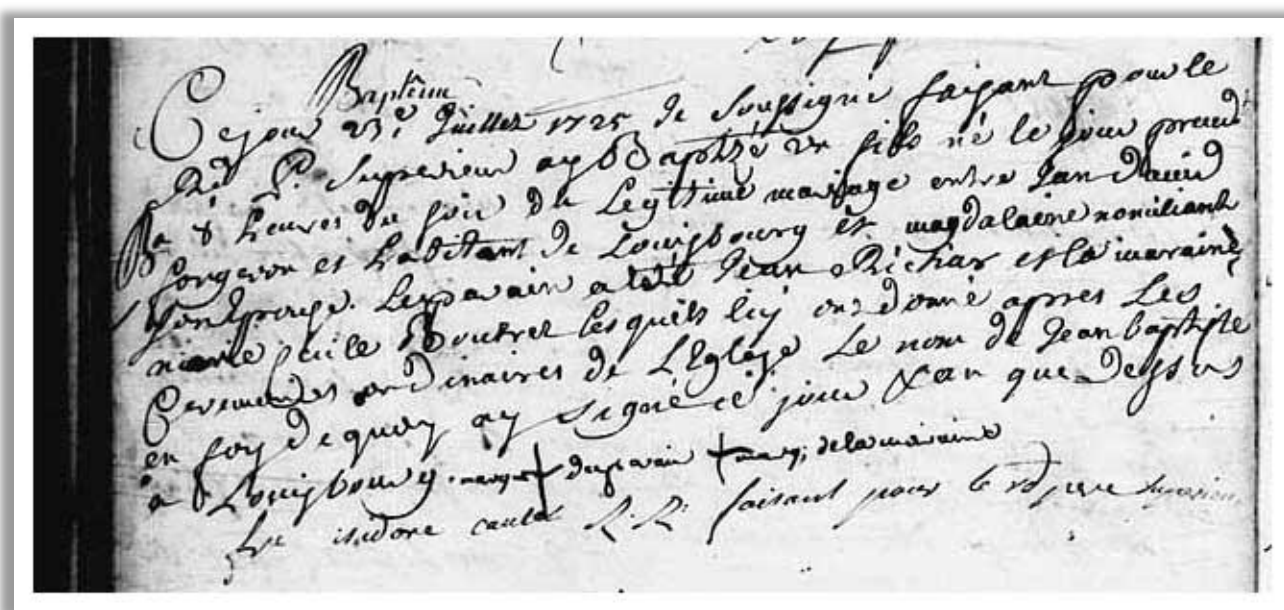 Baptême
Ce jour 23e Juillet 1725 Je Soussigné faisant pour le
Rd P. Superieur ay Baptizé un fils né le jour preced
a 8 heures du soir du Legitime mariage entre Jan David
forgeron et habitant de Louisbourg et magdalaine
son Epouse. Le parain a été Jean Richar et la maraine
marie les quels luy ont donné apres Les
Ceremonies ordinaires de LEglize Le nom de Jean baptiste
en foy de quoy ay signé ce jour & an que Dessus
a Louisbourg. marque du parain marq; de la maraine
fre isidore caulet R. R. faisant pour le rd pere superieur